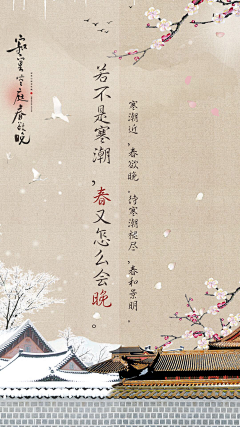 寂寞空庭春欲晚
若不是寒潮，春又怎么会晚。
寒潮近，春欲晚。待寒潮褪尽，春和景明。